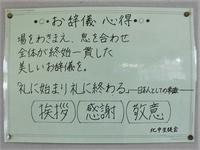 ・○お辞儀心得○・
場をわきまえ、息を合わせ
全体が終始一貫した
美しいお辞儀を。
「礼に始まり礼に終わる」――日本人としての
挨拶 感謝 敬意
北中生徒会